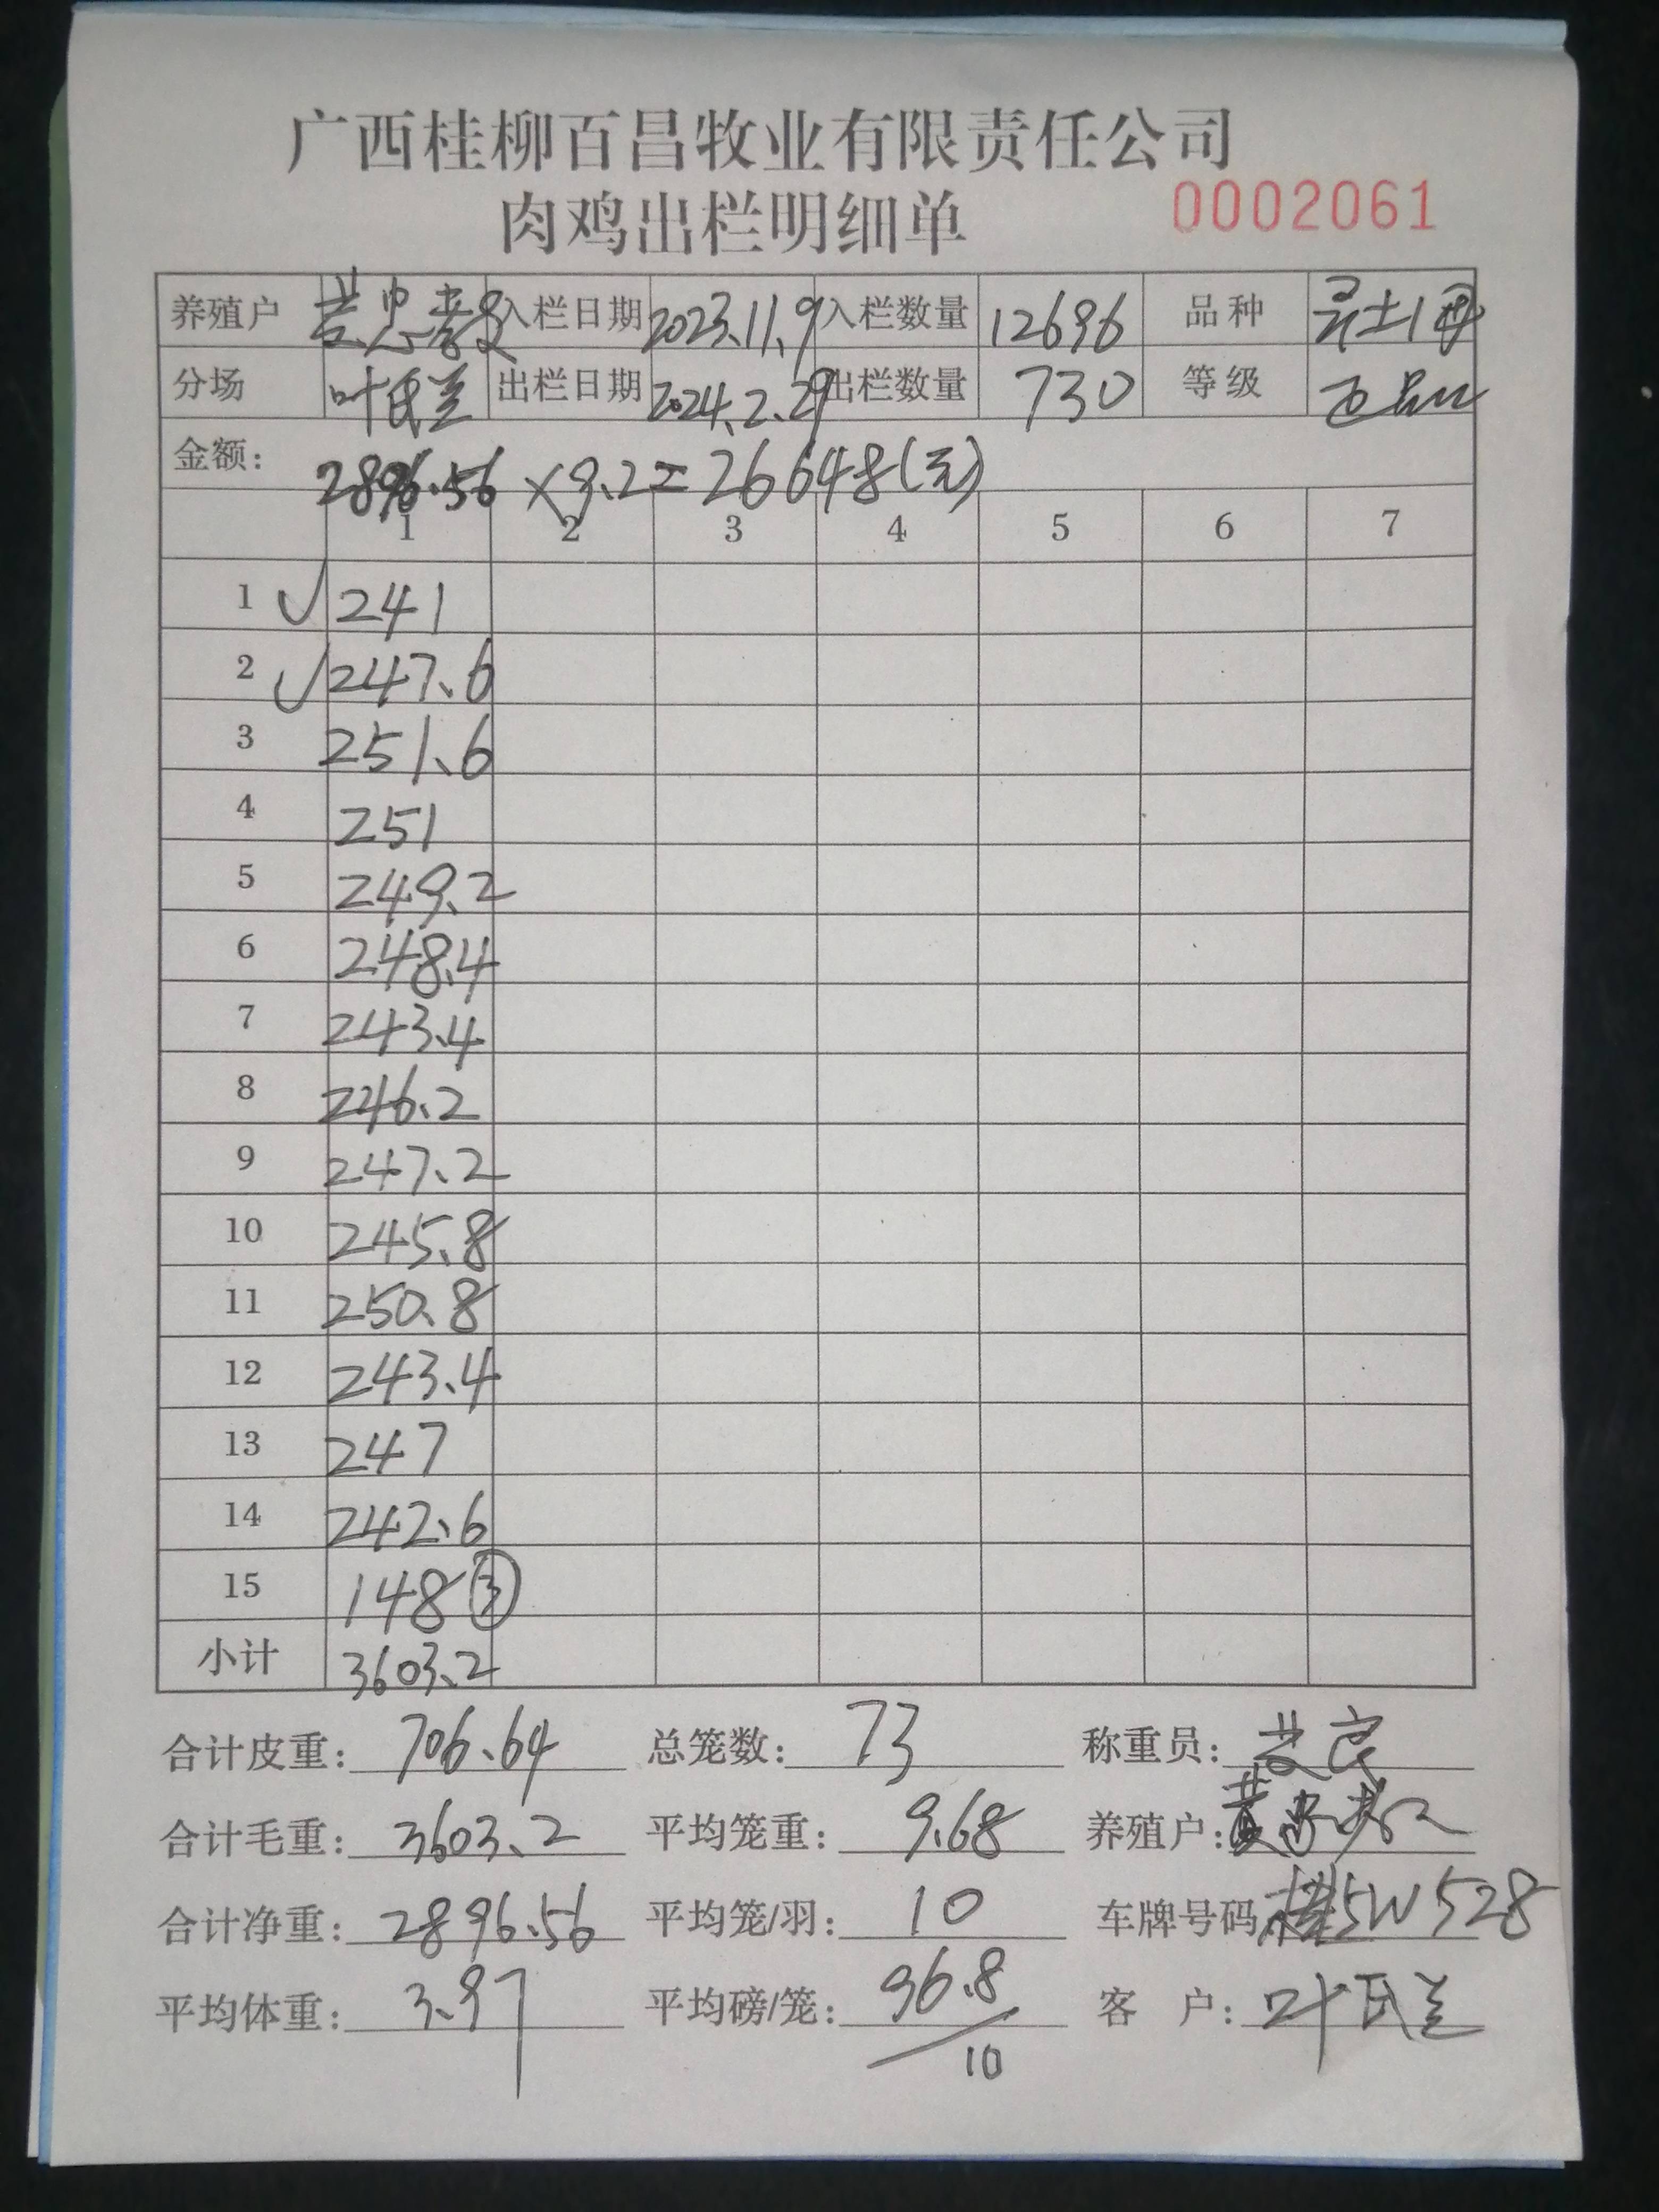 广西桂柳百昌牧业有限责任公司
肉鸡出栏明细单 0002061
养殖户 入栏日期 2023.11.9 入栏数量 12696 品种
分场 叶民兰 出栏日期 2024.2.29 出栏数量 730 等级
金额: 2896.56×9.2=26648(元)
1 2 3 4 5 6 7
1 √ 241
2 √ 247.6
3 251.6
4 251
5 249.2
6 248.4
7 243.4
8 246.2
9 247.2
10 245.8
11 250.8
12 243.4
13 247
14 242.6
15 148 ③
小计 3603.2
合计皮重: 706.64 总笼数: 73 称重员:
合计毛重: 3603.2 平均笼重: 9.68 养殖户:
合计净重: 2896.56 平均笼/羽: 10 车牌号码 桂5W528
平均体重: 3.97 平均磅/笼: 96.8/10 客 户: 叶民兰